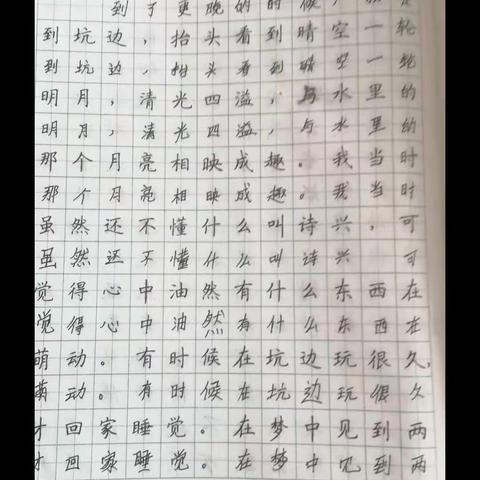 到了更晚的时候，
到坑边，抬头看到晴空一轮
到坑边，抬头看到晴空一轮
明月，清光四溢，与水里的
明月，清光四溢，与水里的
那个月亮相映成趣。我当时
那个月亮相映成趣。我当时
虽然还不懂什么叫诗兴，可
虽然还不懂什么叫诗兴 可
觉得心中油然有什么东西在
觉得心中油然有什么东西在
萌动。有时候在坑边玩很久，
萌动。有时候在坑边玩很久
才回家睡觉。在梦中见到两
才回家睡觉。在梦中见到两